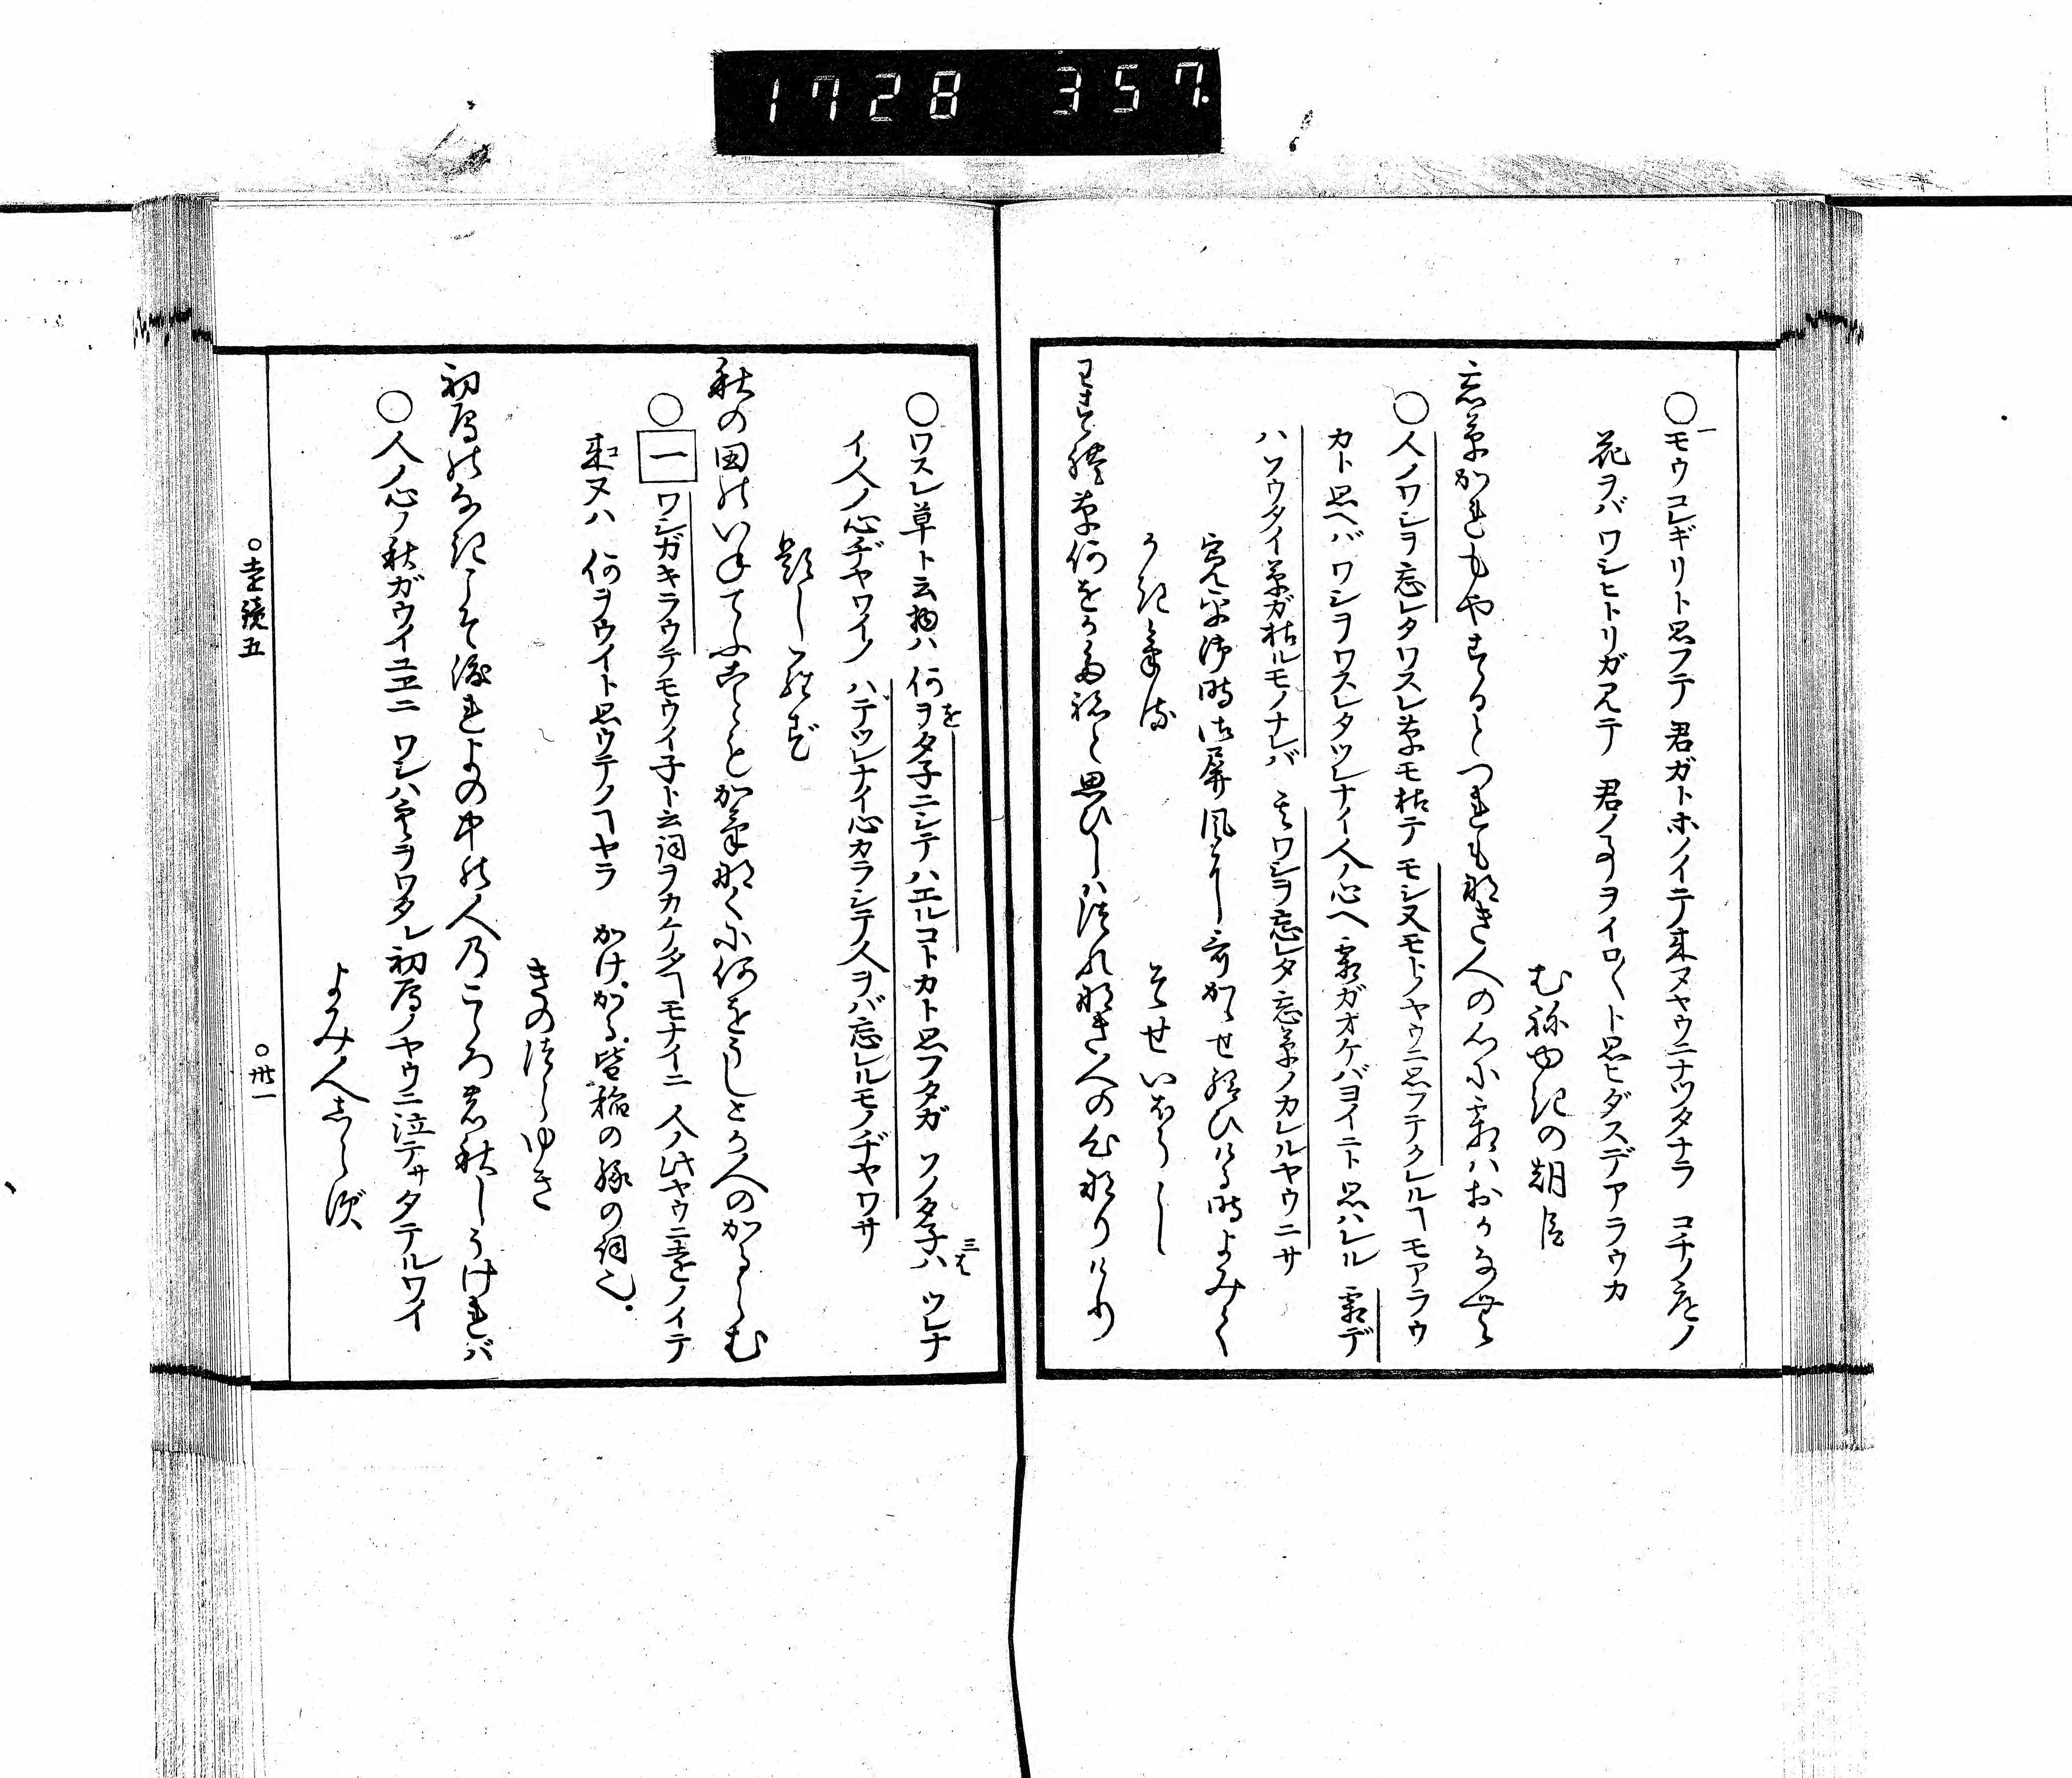 1728 357.
○モウコレギリト思フテ 君ガトホノイテ来ヌヤウニナツタナラ コチノ庭ノ
花ヲバ ワシヒトリガ見テ 君ノ事ヲイロ〱ト思ヒダスデアラウカ
むねゆきの朝臣
忘草かれもやするとつれも那き人の心尓霜ハおかなむ
○人ノワシヲ忘レタワスレ草モ枯テ モシ又モトノヤウニ思フテクレルヿモアラウ
カト思ヘバ ワシヲワスレタツレナイ人ノ心ヘ 霜ガオケバヨイニト思ハレル 霜デ
ハソウタイ草ガ枯ルモノナレバ 其ワシヲ忘レタ忘草ノカレルヤウニサ
寛平御時御屏風に歌かゝせ給ひける時よみて
かきける
そせいほうし
わすれ草何をか多祢と思ひしハつれ那き人の心那りけり
○ワスレ草ト云物ハ 何ヲタ子ニシテハエルコトカト思フタガ ソノタ子ハ ツレナ
イ人ノ心ヂヤワイノ ハテツレナイ心カラシテ人ヲバ忘レルモノヂヤワサ
題しらず
秋の田のいねてふこともかけ那く尓何をうしとか人のかるらむ
○一ワシガキラウテモウイ子ト云詞ヲカケタヿモナイニ 人ノ此ヤウニ遠ノイテ
来ヌハ 何ヲウイト思ウテノヿヤラ かけ。かる。皆稲の縁の詞也。
きのつらゆき
初鴈のなきこそ渡れよの中の人乃こゝろの秋しうけれバ
○人ノ心ノ秋ガウイユヱニ ワシハ空ヲワタル初鴈ノヤウニ泣テサタテルワイ
よみ人しらず
○遠鏡五
○卅一